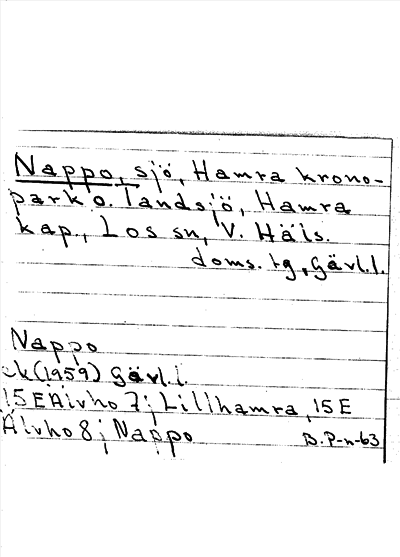 Nappo, sjö, Hamra krono-
park o. Tandsjö, Hamra
kap., Los sn, V. Häls.
doms. tg, Gävl.l.
Nappo
ek(1959) Gävl.l.
15EÄlvho 7; Lillhamra, 15E
Älvho 8; Nappo
B. P-n-63